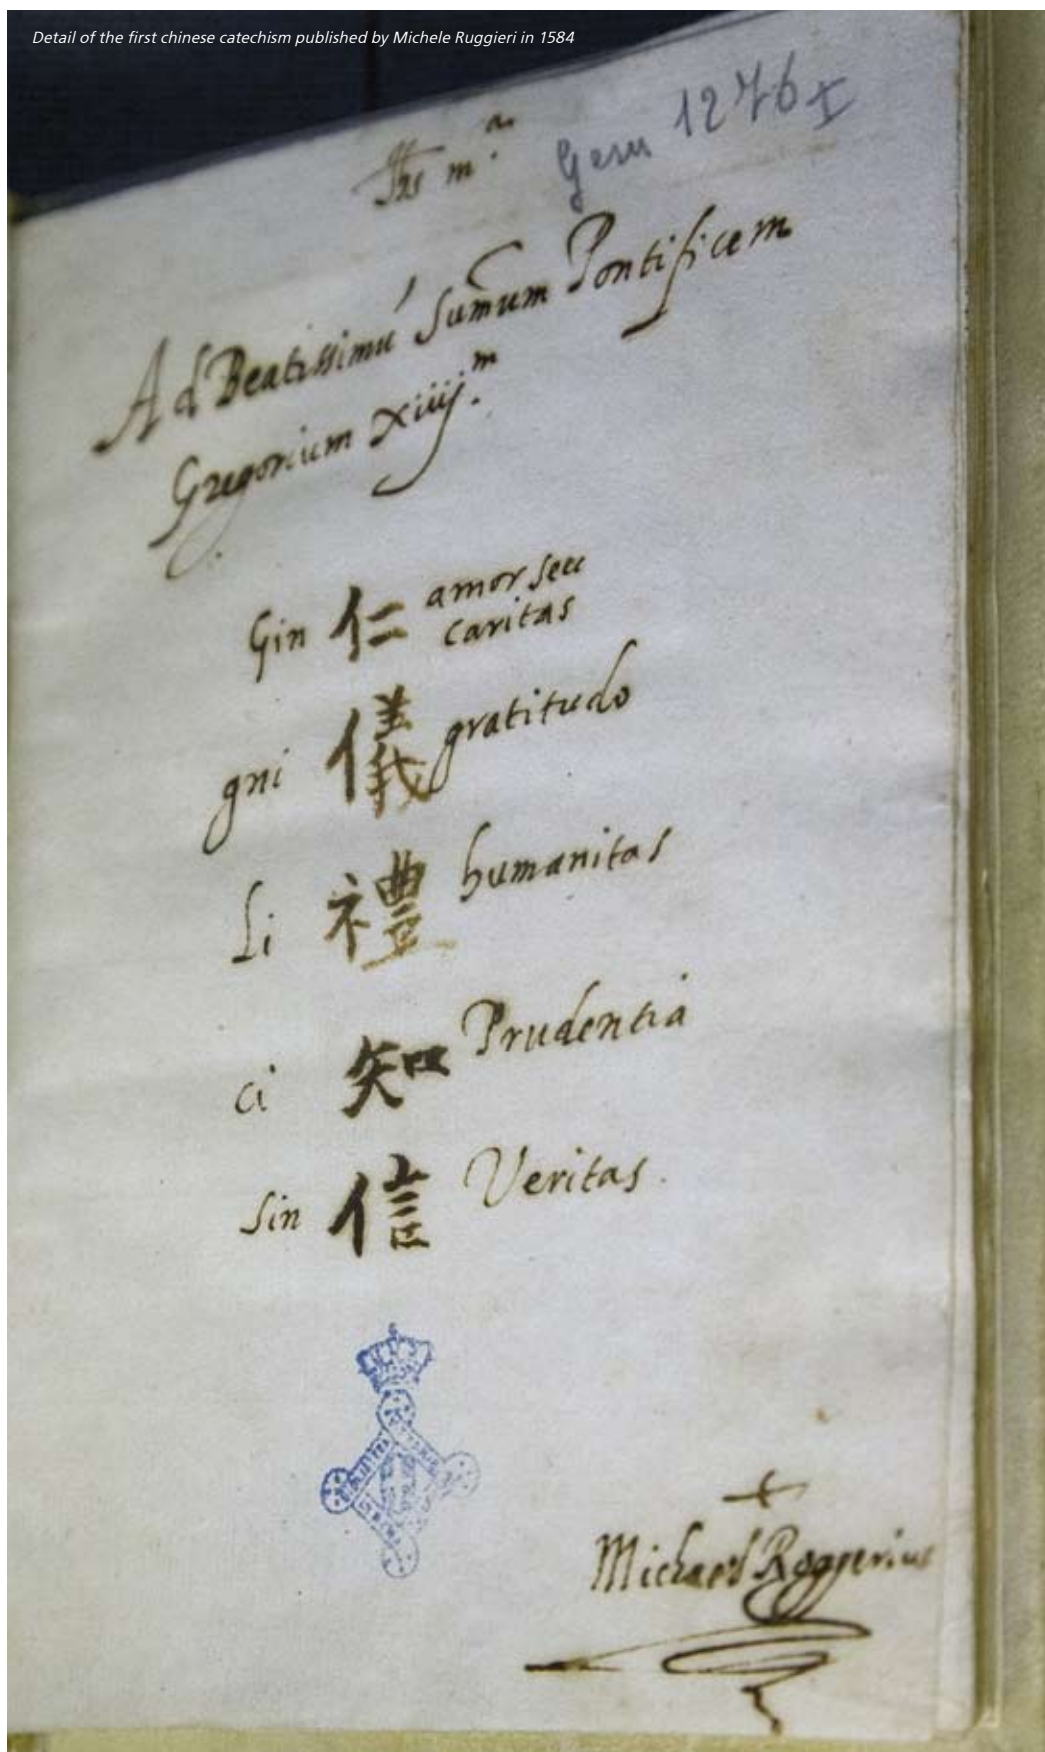 Detail of the first chinese catechism published by Michele Ruggieri in 1584
Jhs m.ª
Gesu 1276 I
Ad Beatissimú Sum̃um Pontificem
Gregorium xiiij.m
Gin 仁 amor seu
caritas
gni 儀 gratitudo
Li 禮 humanitas
ci 知 Prudentia
sin 信 Veritas.
Michael Roggerius